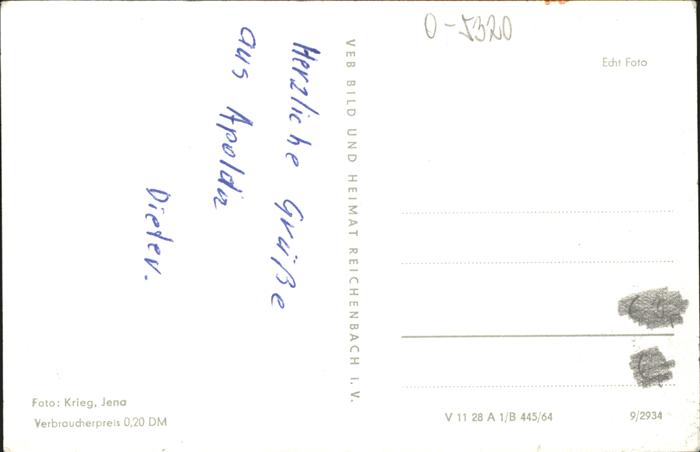 O-5320
Echt Foto
Herzliche Grüße
aus Apolda
Dieter.
VEB BILD UND HEIMAT REICHENBACH I. V.
Foto: Krieg, Jena
Verbraucherpreis 0,20 DM
V 11 28 A 1/B 445/64
9/2934